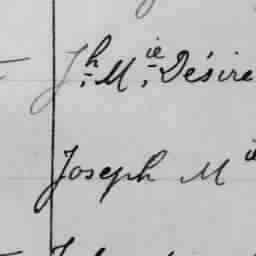 Jh Mie Désiré
Joseph M